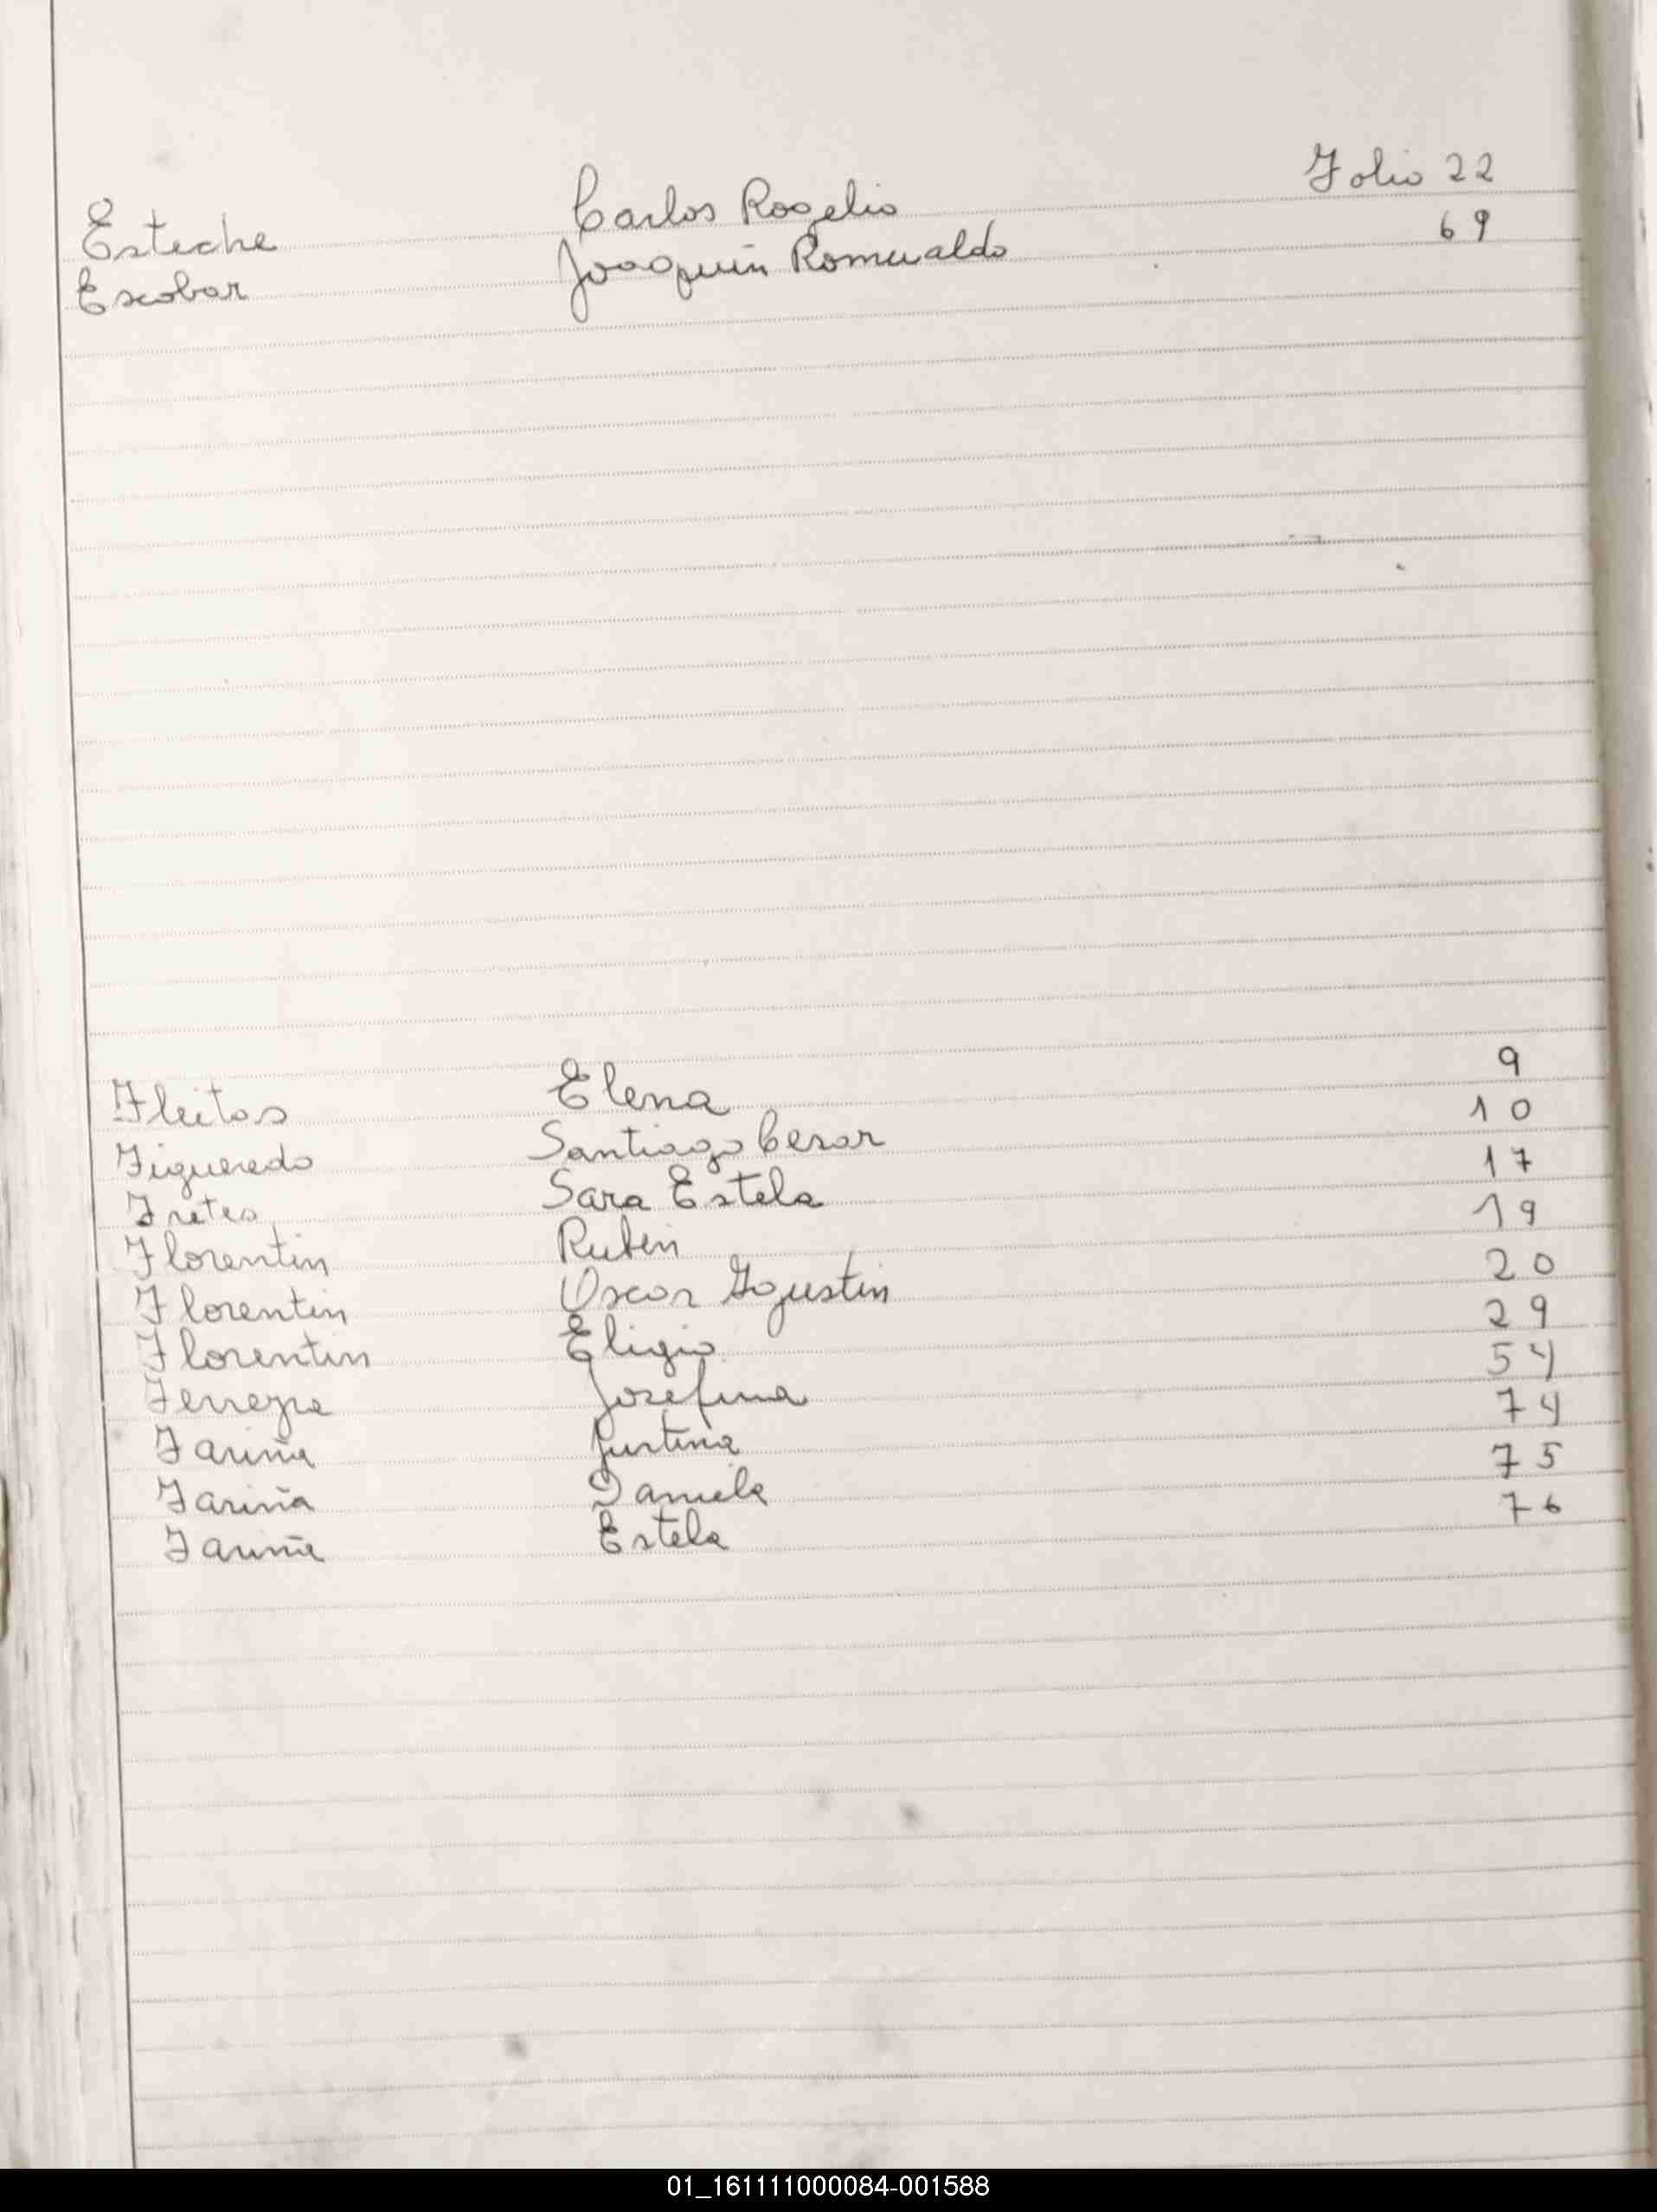 Esteche Carlos Rogelio Folio 22
Escobar Joaquin Romualdo 69
Fleitas Elena 9
Figueredo Santiago Cesar 10
Fretes Sara Estela 17
Florentin Ruben 19
Florentin Oscar Agustin 20
Florentin Eligio 29
Ferreyra Josefina 54
Fariña Justina 74
Fariña Daniela 75
Fariña Estela 76
01_161111000084-001588